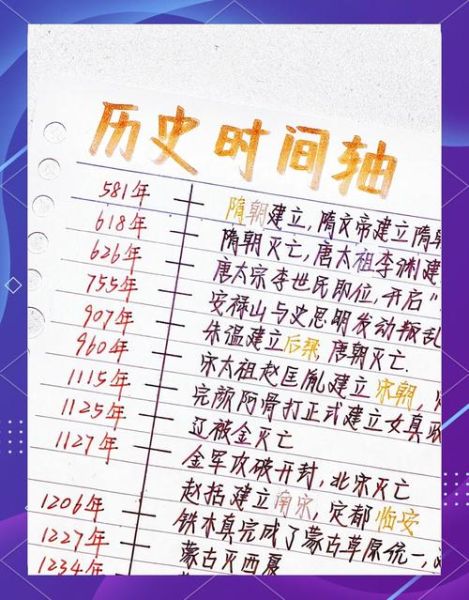 历史时间轴
581年 隋朝建立,隋文帝建立隋朝
618年 隋朝灭亡,唐太祖李渊建
626年 唐太宗李世民即位,开启"
755年 安禄山与史思明发动叛乱
907年 朱温建立后梁 唐朝灭亡.
960年 宋太祖赵匡胤建立宋朝,
1115年 完颜阿骨打正式建立女真政
1125年 辽被金灭亡
1127年 金军攻破开封,北宋灭亡
赵括建立南宋,定都临安
1206年 铁木真完成了蒙古草原统一,
1227年 蒙古灭西夏
1234年